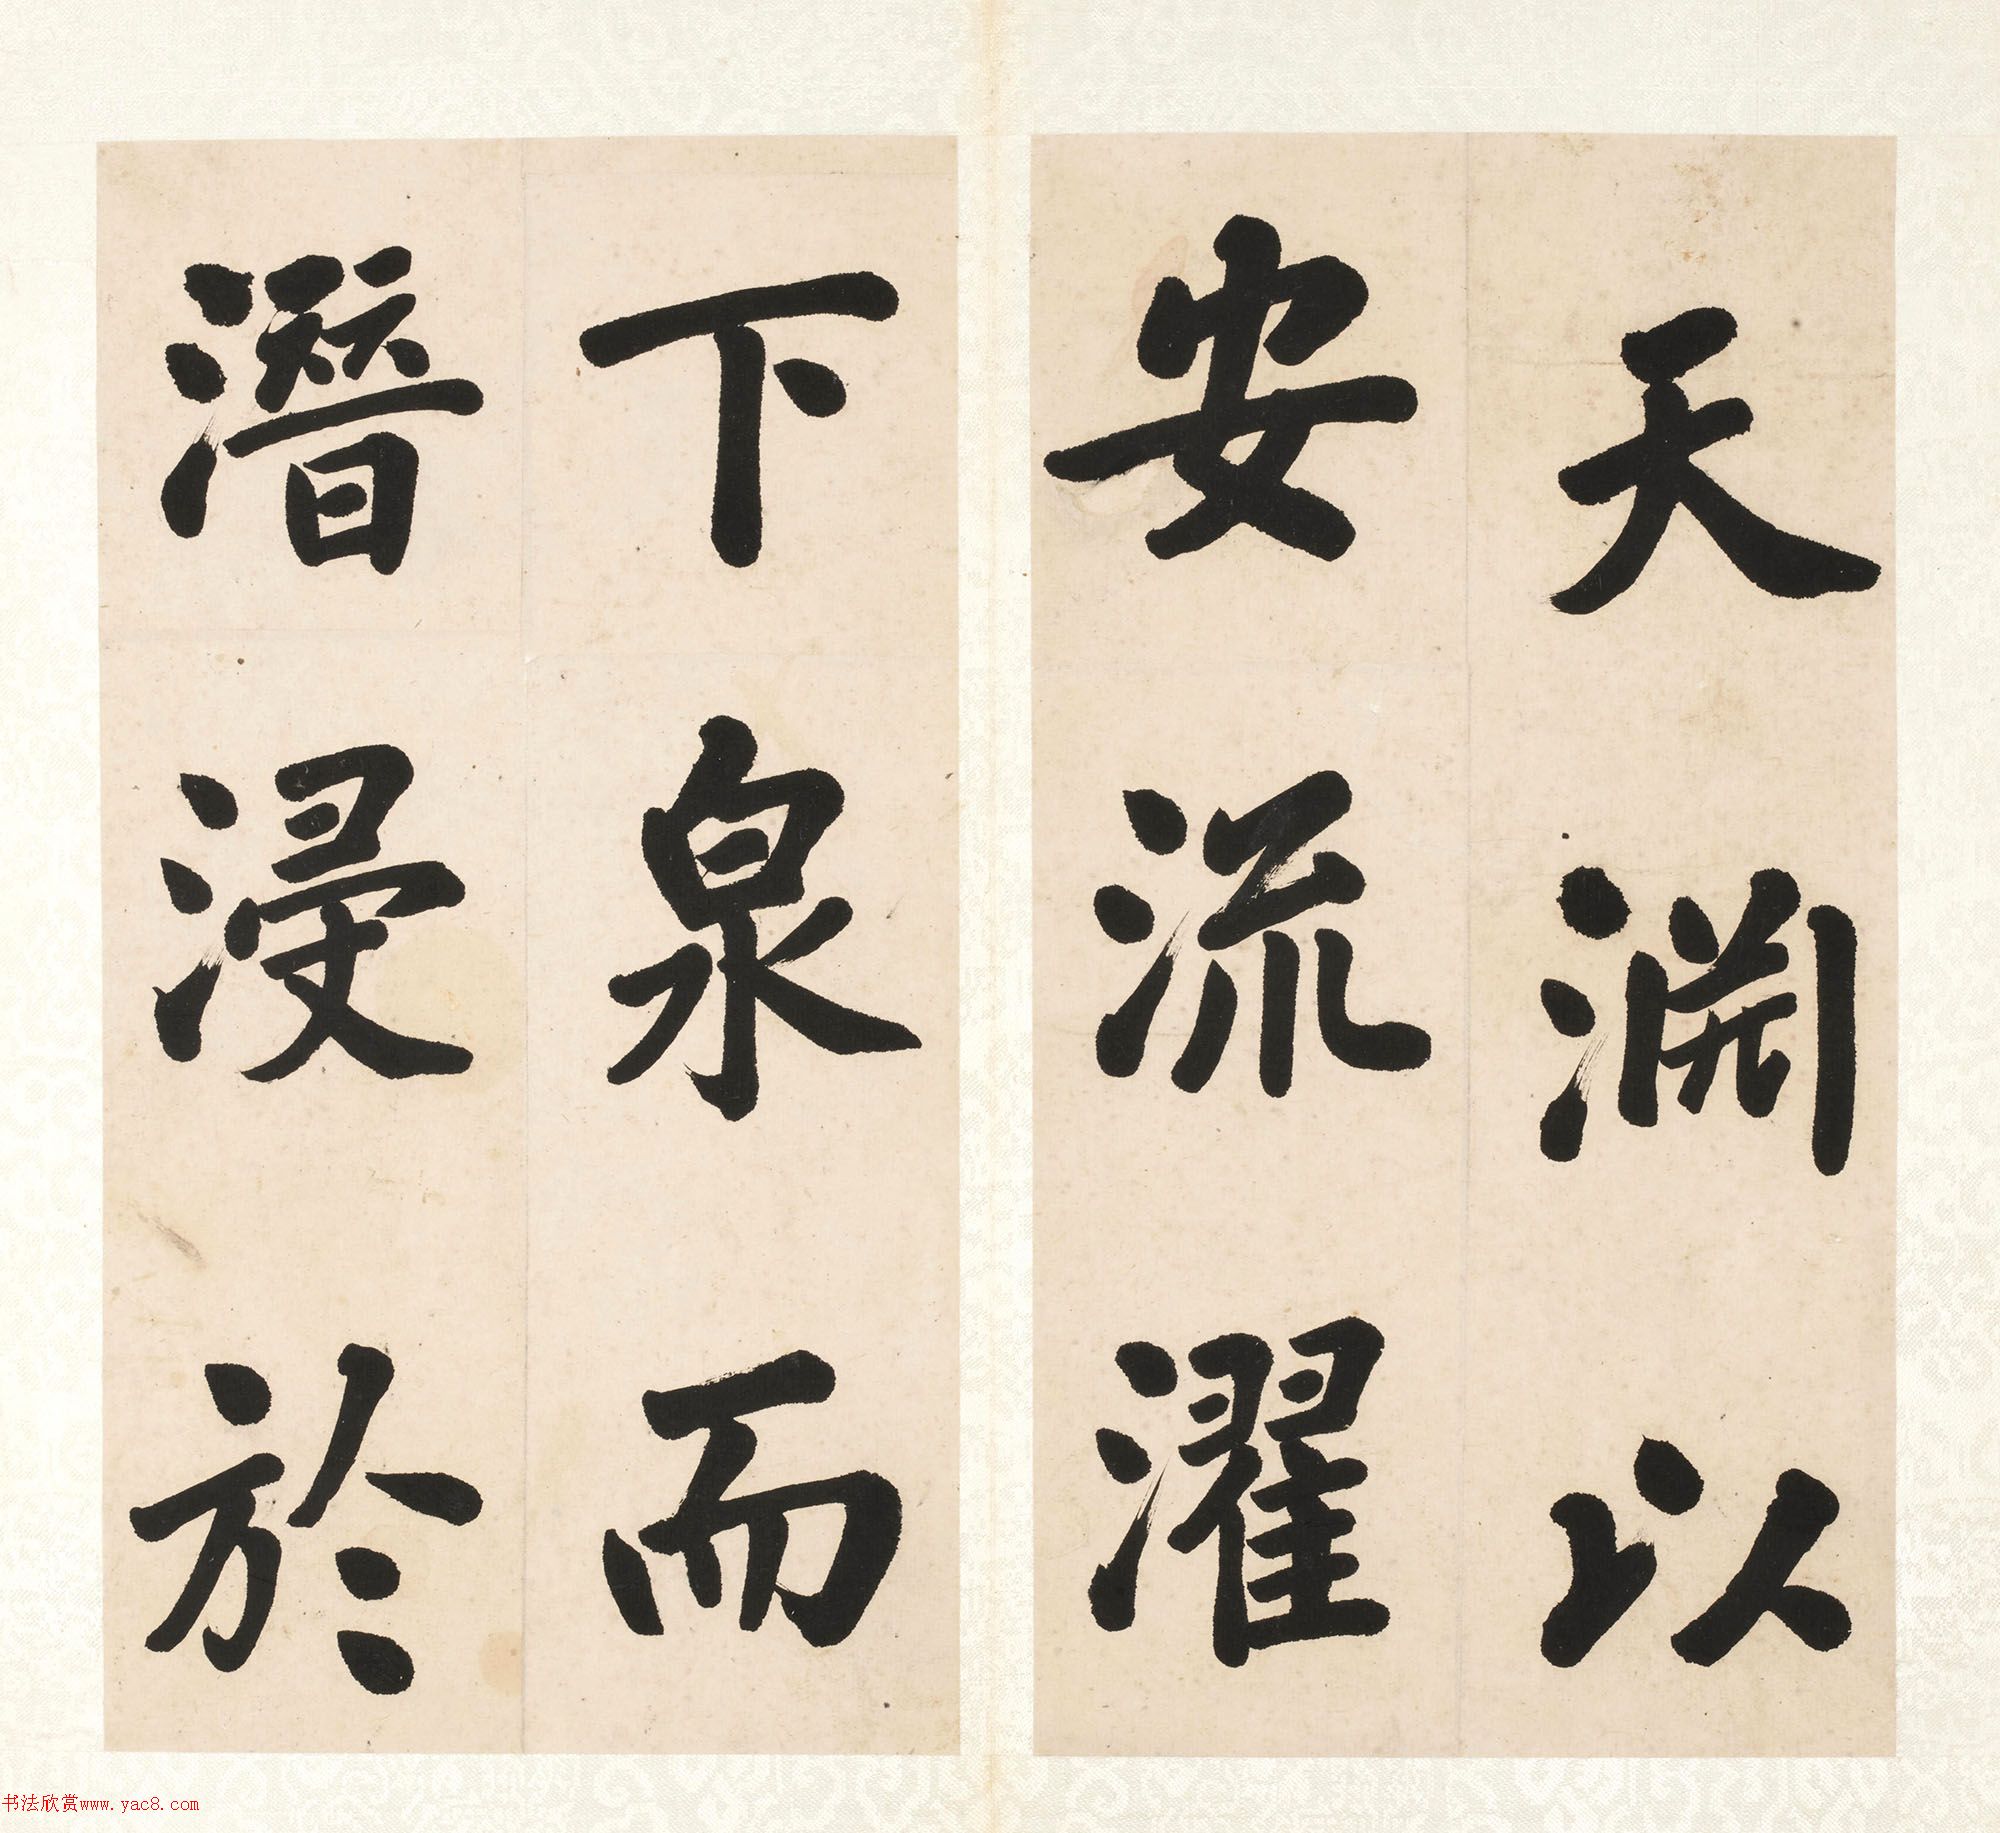 天淵以
安流濯
下泉而
潛浸於
书法欣赏www.yac8.com